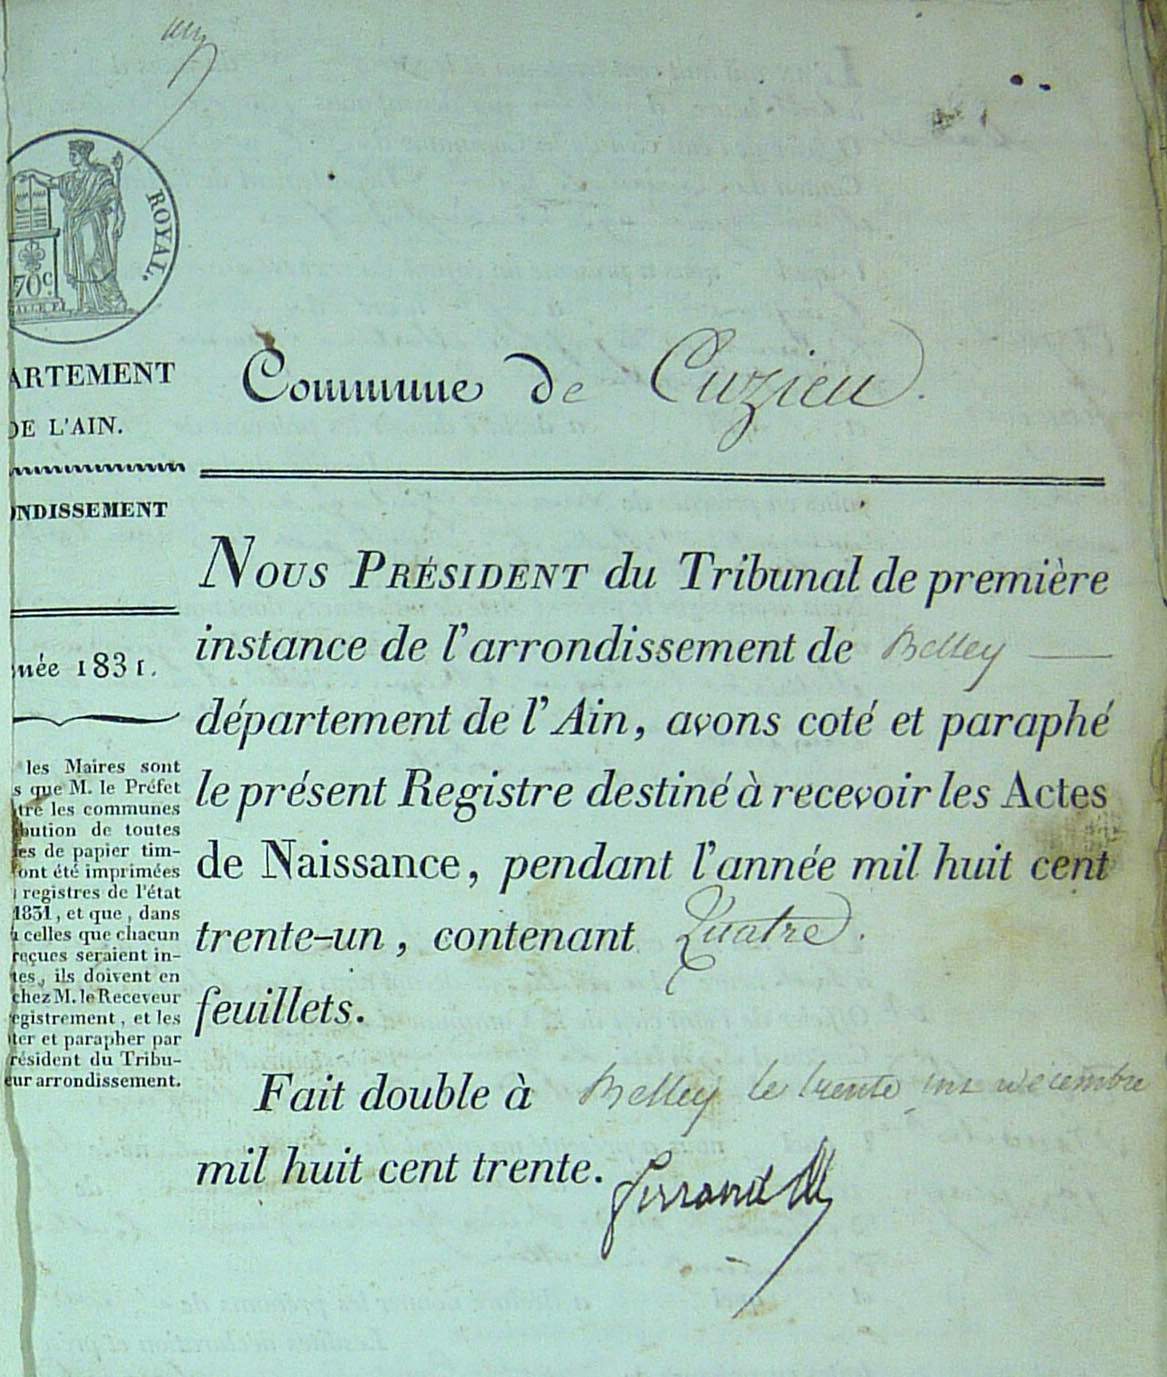 ROYAL.
70c.
ARTEMENT
DE L'AIN.
Commune de Cuzieu.
ONDISSEMENT
née 1831.
les Maires sont
s que M. le Préfet
tre les communes
bution de toutes
es de papier tim-
ont été imprimées
registres de l'état
1831, et que, dans
celles que chacun
reçues seraient in-
tes, ils doivent en
chez M. le Receveur
egistrement, et les
ter et parapher par
résident du Tribu-
eur arrondissement.
NOUS PRÉSIDENT du Tribunal de première
instance de l'arrondissement de Belley —
département de l'Ain, avons coté et paraphé
le présent Registre destiné à recevoir les Actes
de Naissance, pendant l'année mil huit cent
trente-un, contenant Quatre.
feuillets.
Fait double à Belley le trente un décembre
mil huit cent trente.